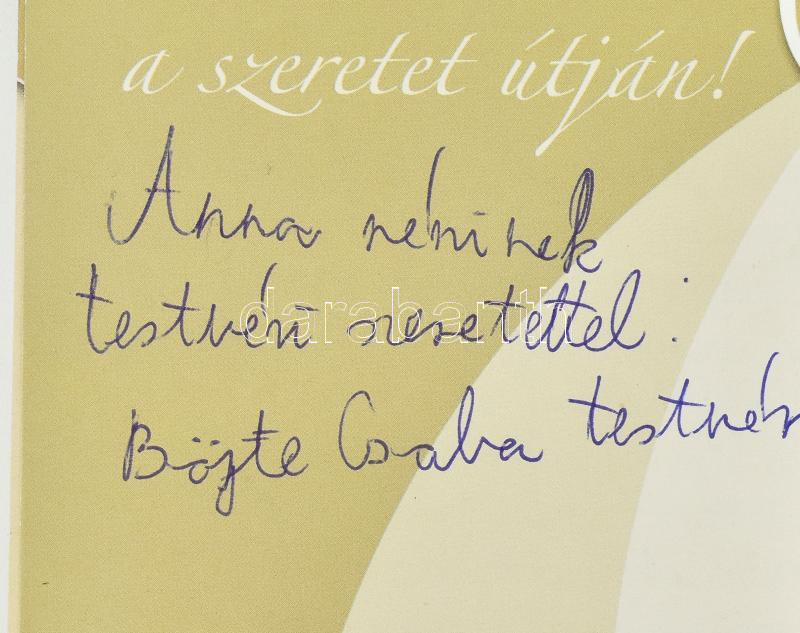 a szeretet útján!
Anna néninek
testvéri szeretettel:
darabanth
Böjte Csaba testvér